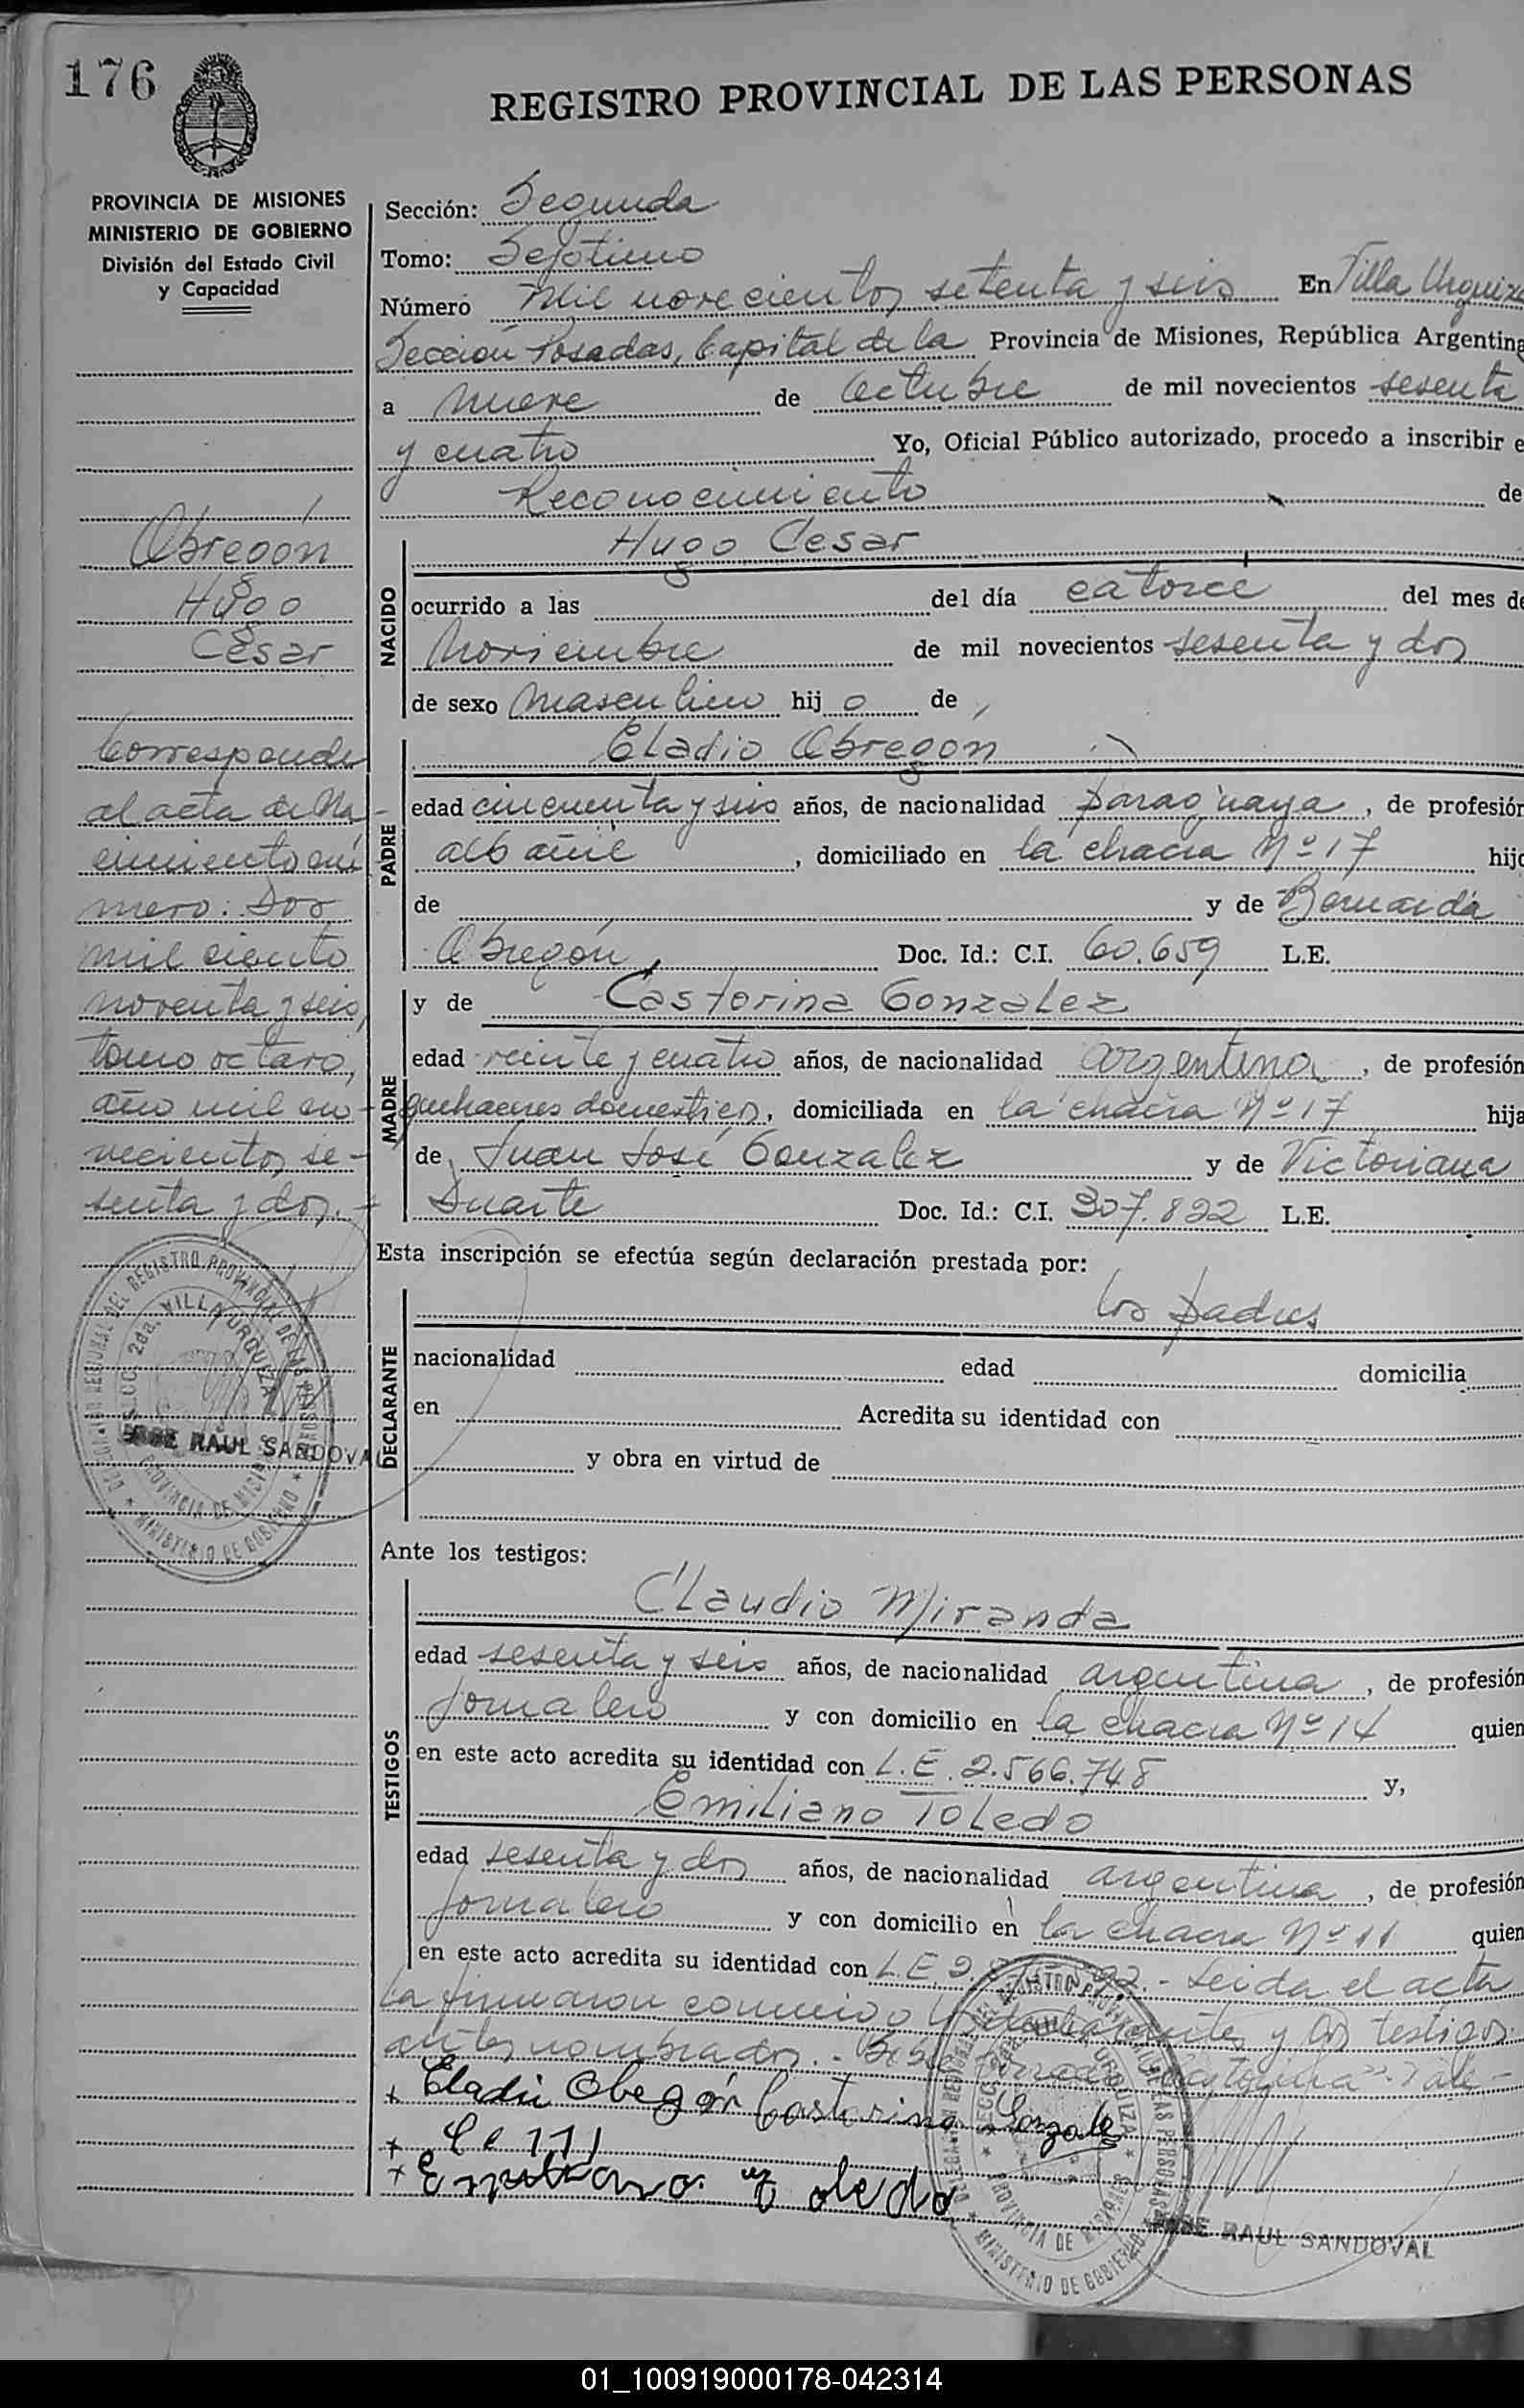 176
REGISTRO PROVINCIAL DE LAS PERSONAS
PROVINCIA DE MISIONES
MINISTERIO DE GOBIERNO
División del Estado Civil
y Capacidad
Sección: Segunda
Tomo: Septimo
Número Mil novecientos setenta y seis En Villa Urquiza
Sección Posadas, Capital de la Provincia de Misiones, República Argentina
a nueve de Octubre de mil novecientos sesenta
y cuatro Yo, Oficial Público autorizado, procedo a inscribir e
Reconocimiento de
Obregón
Hugo
Cesar
Corresponde
al acta de Na-
cimiento nú
mero: Dos
mil ciento
noventa y seis,
tomo octavo,
año mil no-
vecientos se-
senta y dos.-
NACIDO
Hugo Cesar
ocurrido a las del día catorce del mes de
Noviembre de mil novecientos sesenta y dos
de sexo masculino hij o de,
PADRE
Eladio Obregon
edad cincuenta y seis años, de nacionalidad paraguaya, de profesión
albañil, domiciliado en la chacra Nº 17 hijo
de y de Bernarda
Obregón, Doc. Id.: C.I. 60.659 L.E.
MADRE
y de Castorina Gonzalez
edad veinte y cuatro años, de nacionalidad argentina, de profesión
quehaceres domesticos, domiciliada en la chacra Nº 17 hija
de Juan José Gonzalez y de Victoriana
Duarte Doc. Id.: C.I. 307.822 L.E.
Esta inscripción se efectúa según declaración prestada por:
DECLARANTE
los padres
nacionalidad edad domicilia
en Acredita su identidad con
y obra en virtud de
DELEGACION REGIONAL DEL REGISTRO PROVINCIAL DE LAS PERSONAS
SECC. 2da. VILLA URQUIZA
PROVINCIA DE MISIONES
MINISTERIO DE GOBIERNO
JOSE RAUL SANDOVAL
Ante los testigos:
TESTIGOS
Claudio Miranda
edad sesenta y seis años, de nacionalidad argentina, de profesión
jornalero y con domicilio en la chacra Nº 14 quien
en este acto acredita su identidad con L.E. 2.566.748 y,
Emiliano Toledo
edad sesenta y dos años, de nacionalidad argentina, de profesión
jornalero y con domicilio en la chacra Nº 11 quien
en este acto acredita su identidad con L.E. 2. - Leida el acta
la firmaron conmigo los declarantes y los testigos
antes nombrados.- Castorina" Vale-
+ Eladio Obregón Castorina Gonzalez
+
+ Emiliano Toledo
DELEGACION REGIONAL DEL REGISTRO PROVINCIAL DE LAS PERSONAS
SECC. 2da. VILLA URQUIZA
PROVINCIA DE MISIONES
MINISTERIO DE GOBIERNO
JOSE RAUL SANDOVAL
01_100919000178-042314